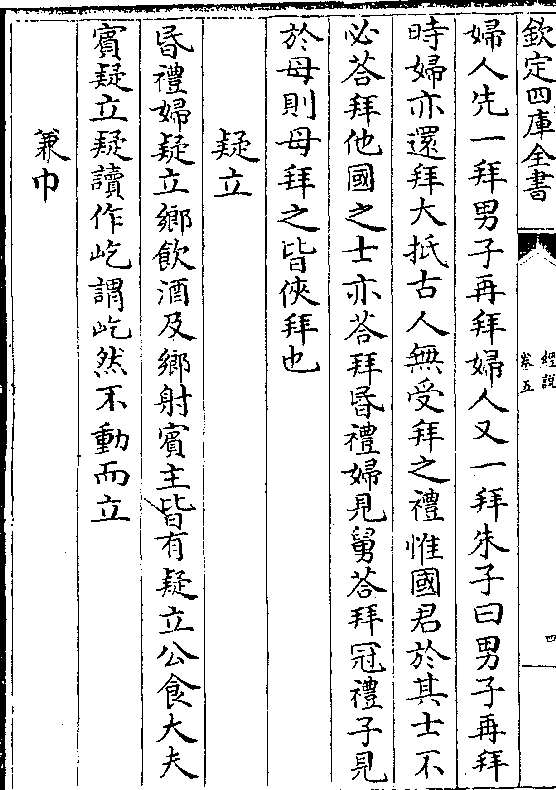 欽定四庫全書
經說
卷五
四
婦人先一拜男子再拜婦人又一拜朱子曰男子再拜
時婦亦還拜大抵古人無受拜之禮惟國君於其士不
必荅拜他國之士亦荅拜昏禮婦見舅荅拜冠禮子見
於母則母拜之皆俠拜也
疑立
昏禮婦疑立鄉飲酒及鄉射賓主皆有疑立公食大夫
賓疑立疑讀作屹謂屹然不動而立
兼巾